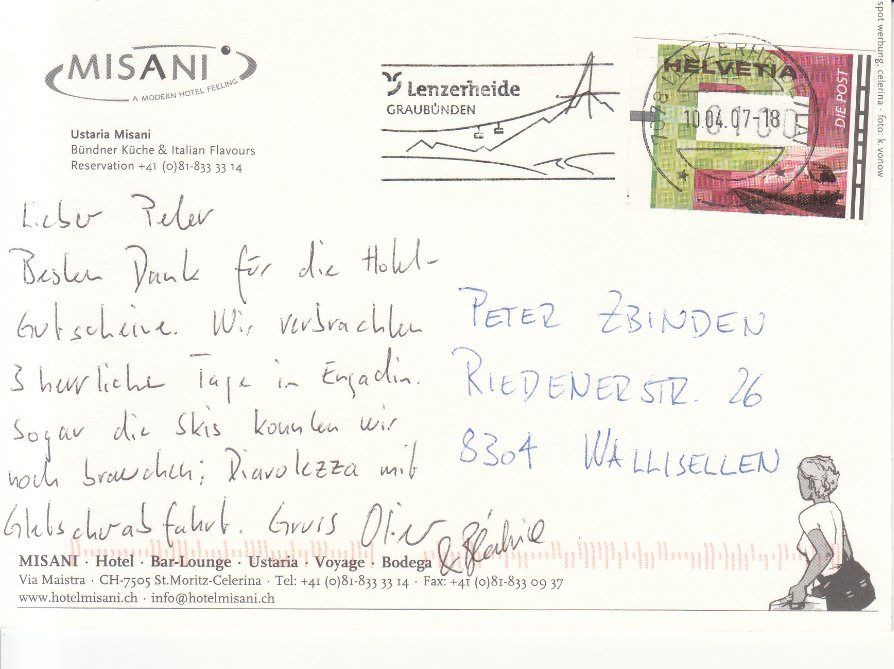 MISANI
A MODERN HOTEL FEELING
Ustaria Misani
Bündner Küche & Italian Flavours
Reservation +41 (0)81-833 33 14
Lenzerheide
GRAUBÜNDEN
HELVETIA
0100
DIE POST
10.04.07-18
7078 LENZERHEIDE/LAI
spot werbung, celerina · foto: k. vonow
Lieber Peter
Besten Dank für die Hotel-
Gutscheine. Wir verbrachten
3 herrliche Tage in Engadin.
Sogar die Skis konnten wir
noch brauchen; Diavolezza mit
Gletscherabfahrt. Gruss Oliver
& Béatrice
PETER ZBINDEN
RIEDENERSTR. 26
8304 WALLISELLEN
MISANI · Hotel · Bar-Lounge · Ustaria · Voyage · Bodega
Via Maistra · CH-7505 St.Moritz-Celerina · Tel: +41 (0)81-833 33 14 · Fax: +41 (0)81-833 09 37
www.hotelmisani.ch · info@hotelmisani.ch